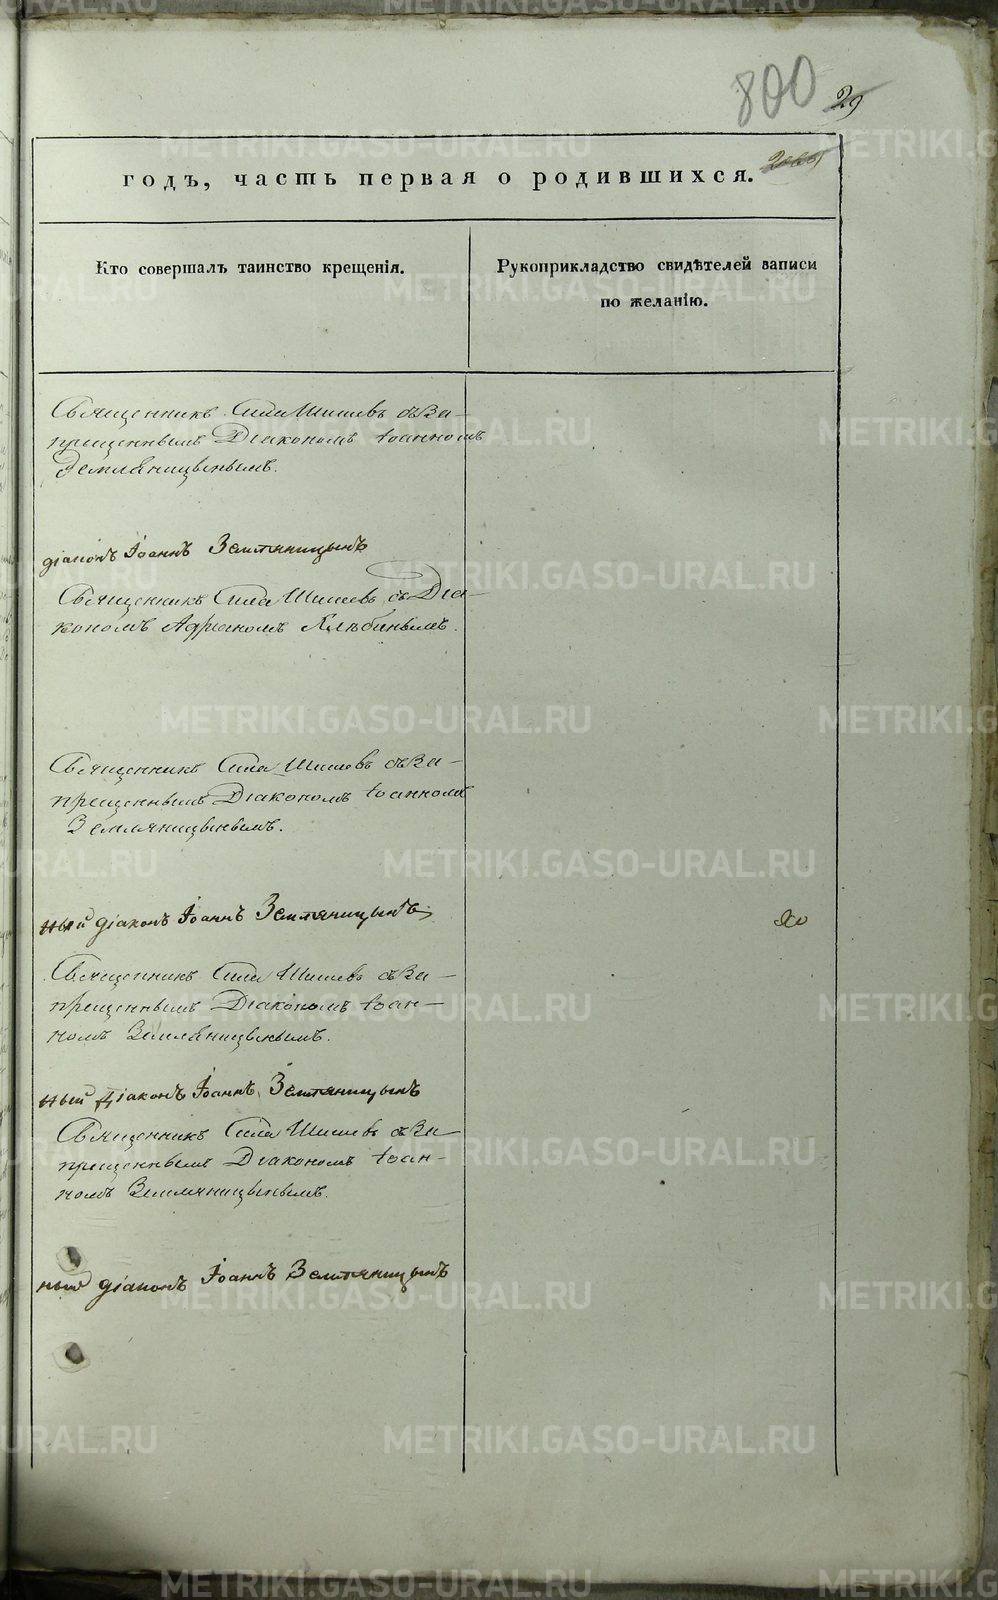 800 29
годъ, часть первая о родившихся.
Кто совершалъ таинство крещенія.
Рукоприкладство свидѣтелей записи
по желанію.
Священникъ Сила Шишевъ съ За-
прещеннымъ Діакономъ Іоанномъ
Земляницынымъ.
діаконъ Іоаннъ Земляницынъ
Священникъ Сила Шишевъ съ Діа-
кономъ Адріаномъ Хлѣбинымъ.
Священникъ Сила Шишевъ съ За-
прещеннымъ Діакономъ Іоанномъ
Земляницынымъ.
ный діаконъ Іоаннъ Земляницынъ
Священникъ Сила Шишевъ съ За-
прещеннымъ Діакономъ Іоан-
номъ Земляницынымъ.
ный діаконъ Іоаннъ Земляницынъ
Священникъ Сила Шишевъ съ За-
прещеннымъ Діакономъ Іоан-
номъ Земляницынымъ.
ный діаконъ Іоаннъ Земляницынъ
METRIKI.GASO-URAL.RU